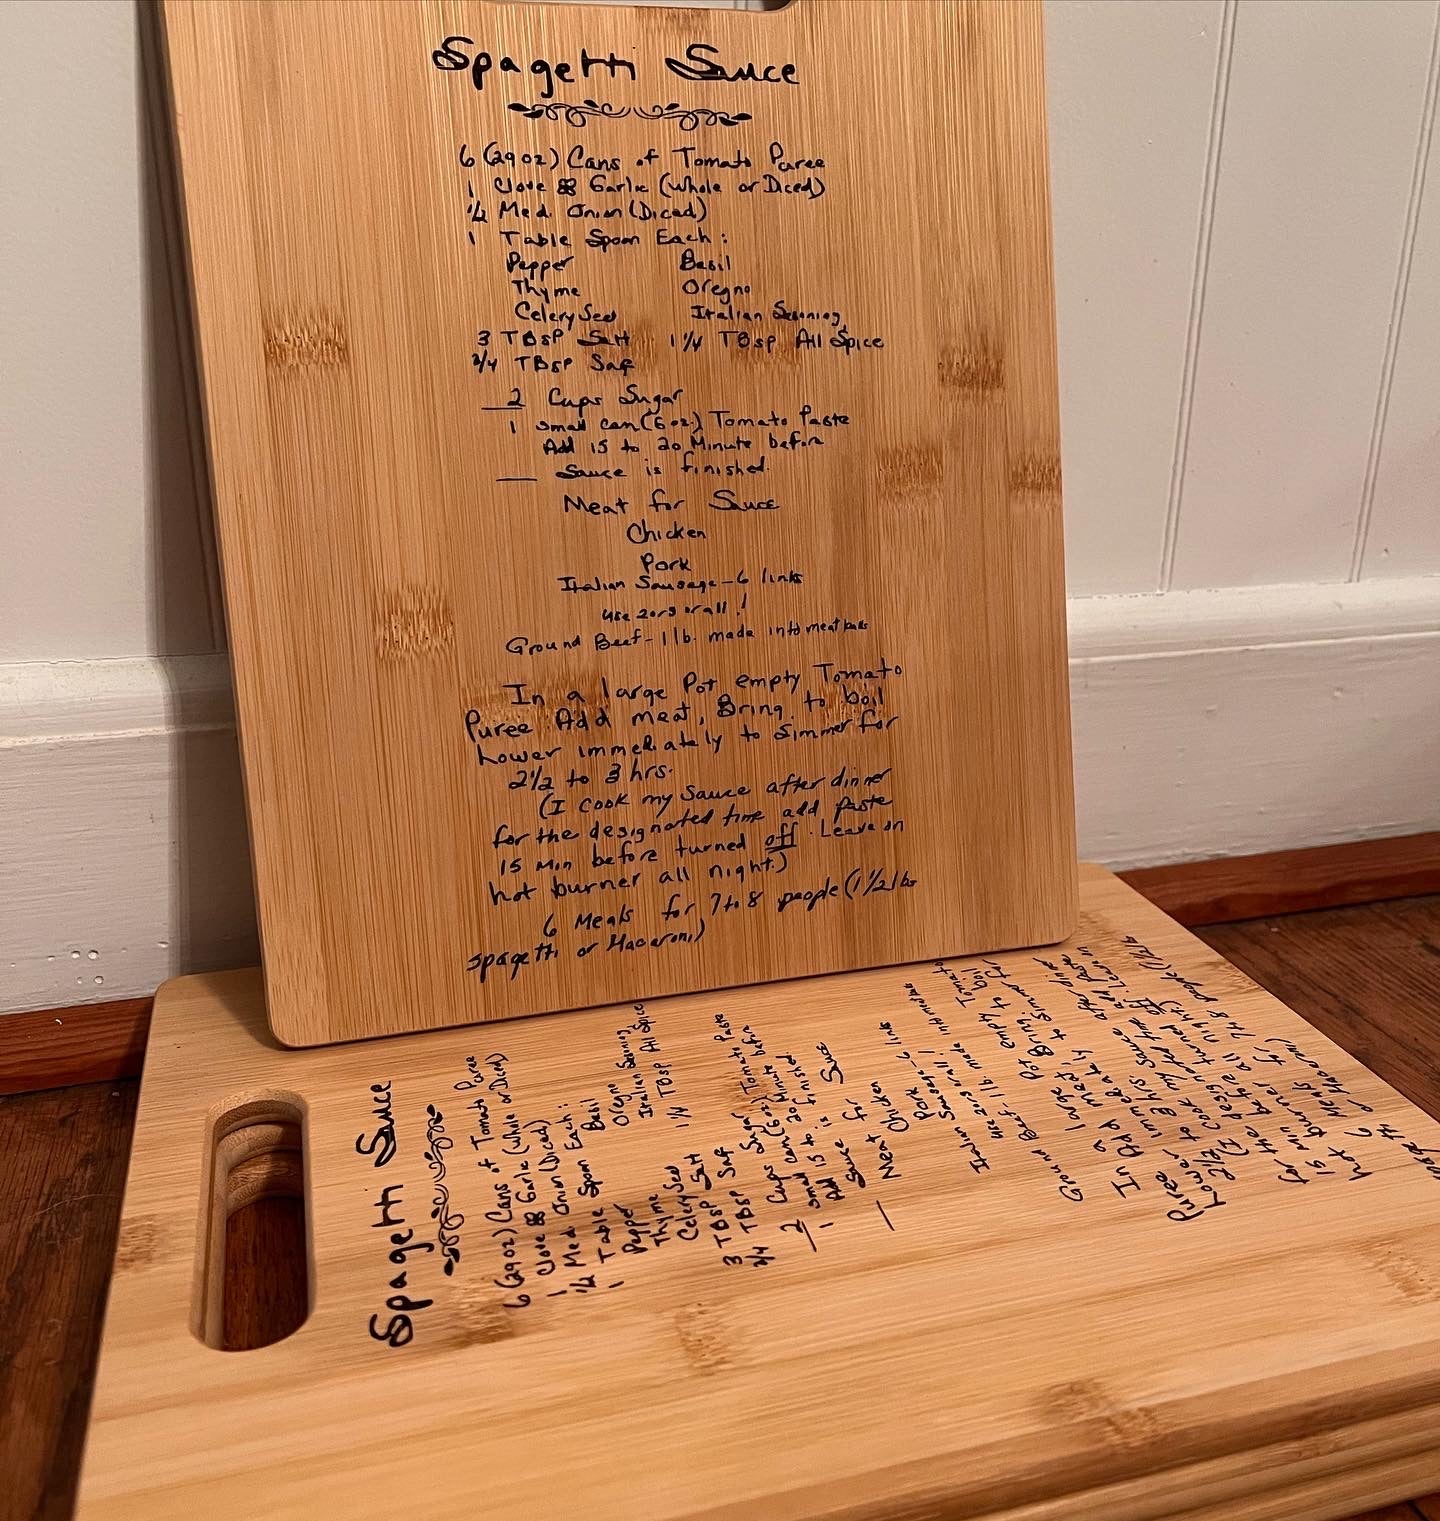 Spagetti Sauce
6 (29 oz) Cans of Tomato Paree
1 Clove Garlic (Whole or Diced)
1/2 Med. Onion (Diced)
1 Table Spoon Each:
Pepper Basil
Thyme Oregno
Celery Seed Italian Seasoning
3 TBSP Salt 1 1/4 TBsp All Spice
3/4 TBSP Saf
2 Cups Sugar
1 small can (6 oz.) Tomato Paste
Add 15 to 20 Minute before
Sauce is finished.
Meat for Sauce
Chicken
Pork
Italian Sausage - 6 links
use 2 or 3 or all!
Ground Beef - 1 lb. made into meat balls
In a large Pot empty Tomato
Puree Add meat, Bring to boil
Lower immediately to simmer for
2 1/2 to 3 hrs.
(I cook my Sauce after dinner
for the designated time add paste
15 min before turned off. Leave on
hot burner all night.)
6 Meals for 7 to 8 people (1 1/2 lbs
spagetti or Macaroni)
Spagetti Sauce
6 (29 oz) Cans of Tomato Paree
1 Clove Garlic (Whole or Diced)
1/2 Med. Onion (Diced)
1 Table Spoon Each:
Pepper Basil
Thyme Oregno
Celery Seed Italian Seasoning
3 TBSP Salt 1 1/4 TBsp All Spice
3/4 TBSP Saf
2 Cups Sugar
1 small can (6 oz.) Tomato Paste
Add 15 to 20 Minute before
Sauce is finished
Meat for Sauce
Chicken
Pork
Italian Sausage - 6 links
use 2 or 3 or all!
Ground Beef - 1 lb. made into meat
In a large Pot empty Tomato
Puree Add meat, Bring to boil
Lower immediately to simmer for
2 1/2 to 3 hrs.
(I cook my Sauce after dinner
for the designated time add paste
15 min before turned off. Leave on
hot burner all night.)
6 Meals for 7 to 8 people (1 1/2 lb
or Macaroni)